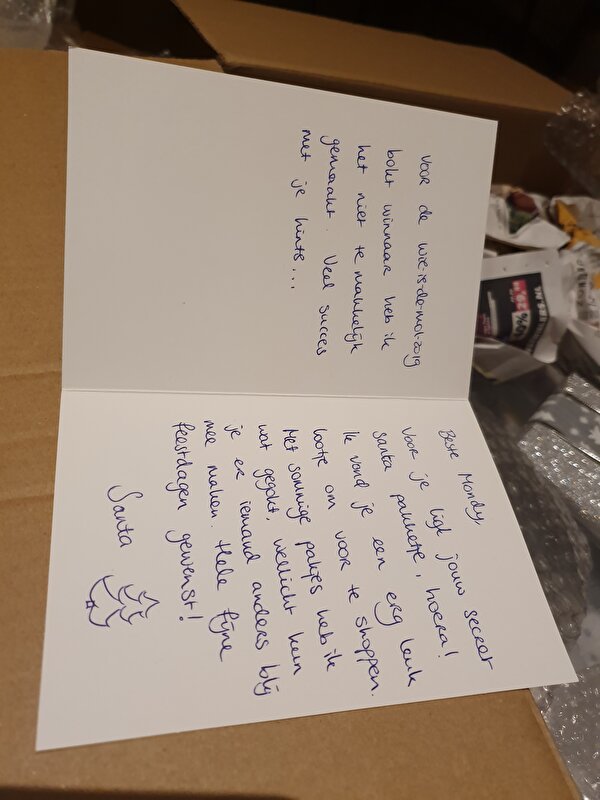 Voor de wie-is-de-mol-2019
bokt winnaar heb ik
het niet te makkelijk
gemaakt. Veel succes
met je hints...
Beste Mandy
Voor je ligt jouw secret
santa pakketje, hoera!
Ik vond je een erg leuk
lootje om voor te shoppen.
Met sommige pakjes heb ik
wat gegokt, wellicht kun
je er iemand anders blij
mee maken. Hele fijne
feestdagen gewenst!
Santa